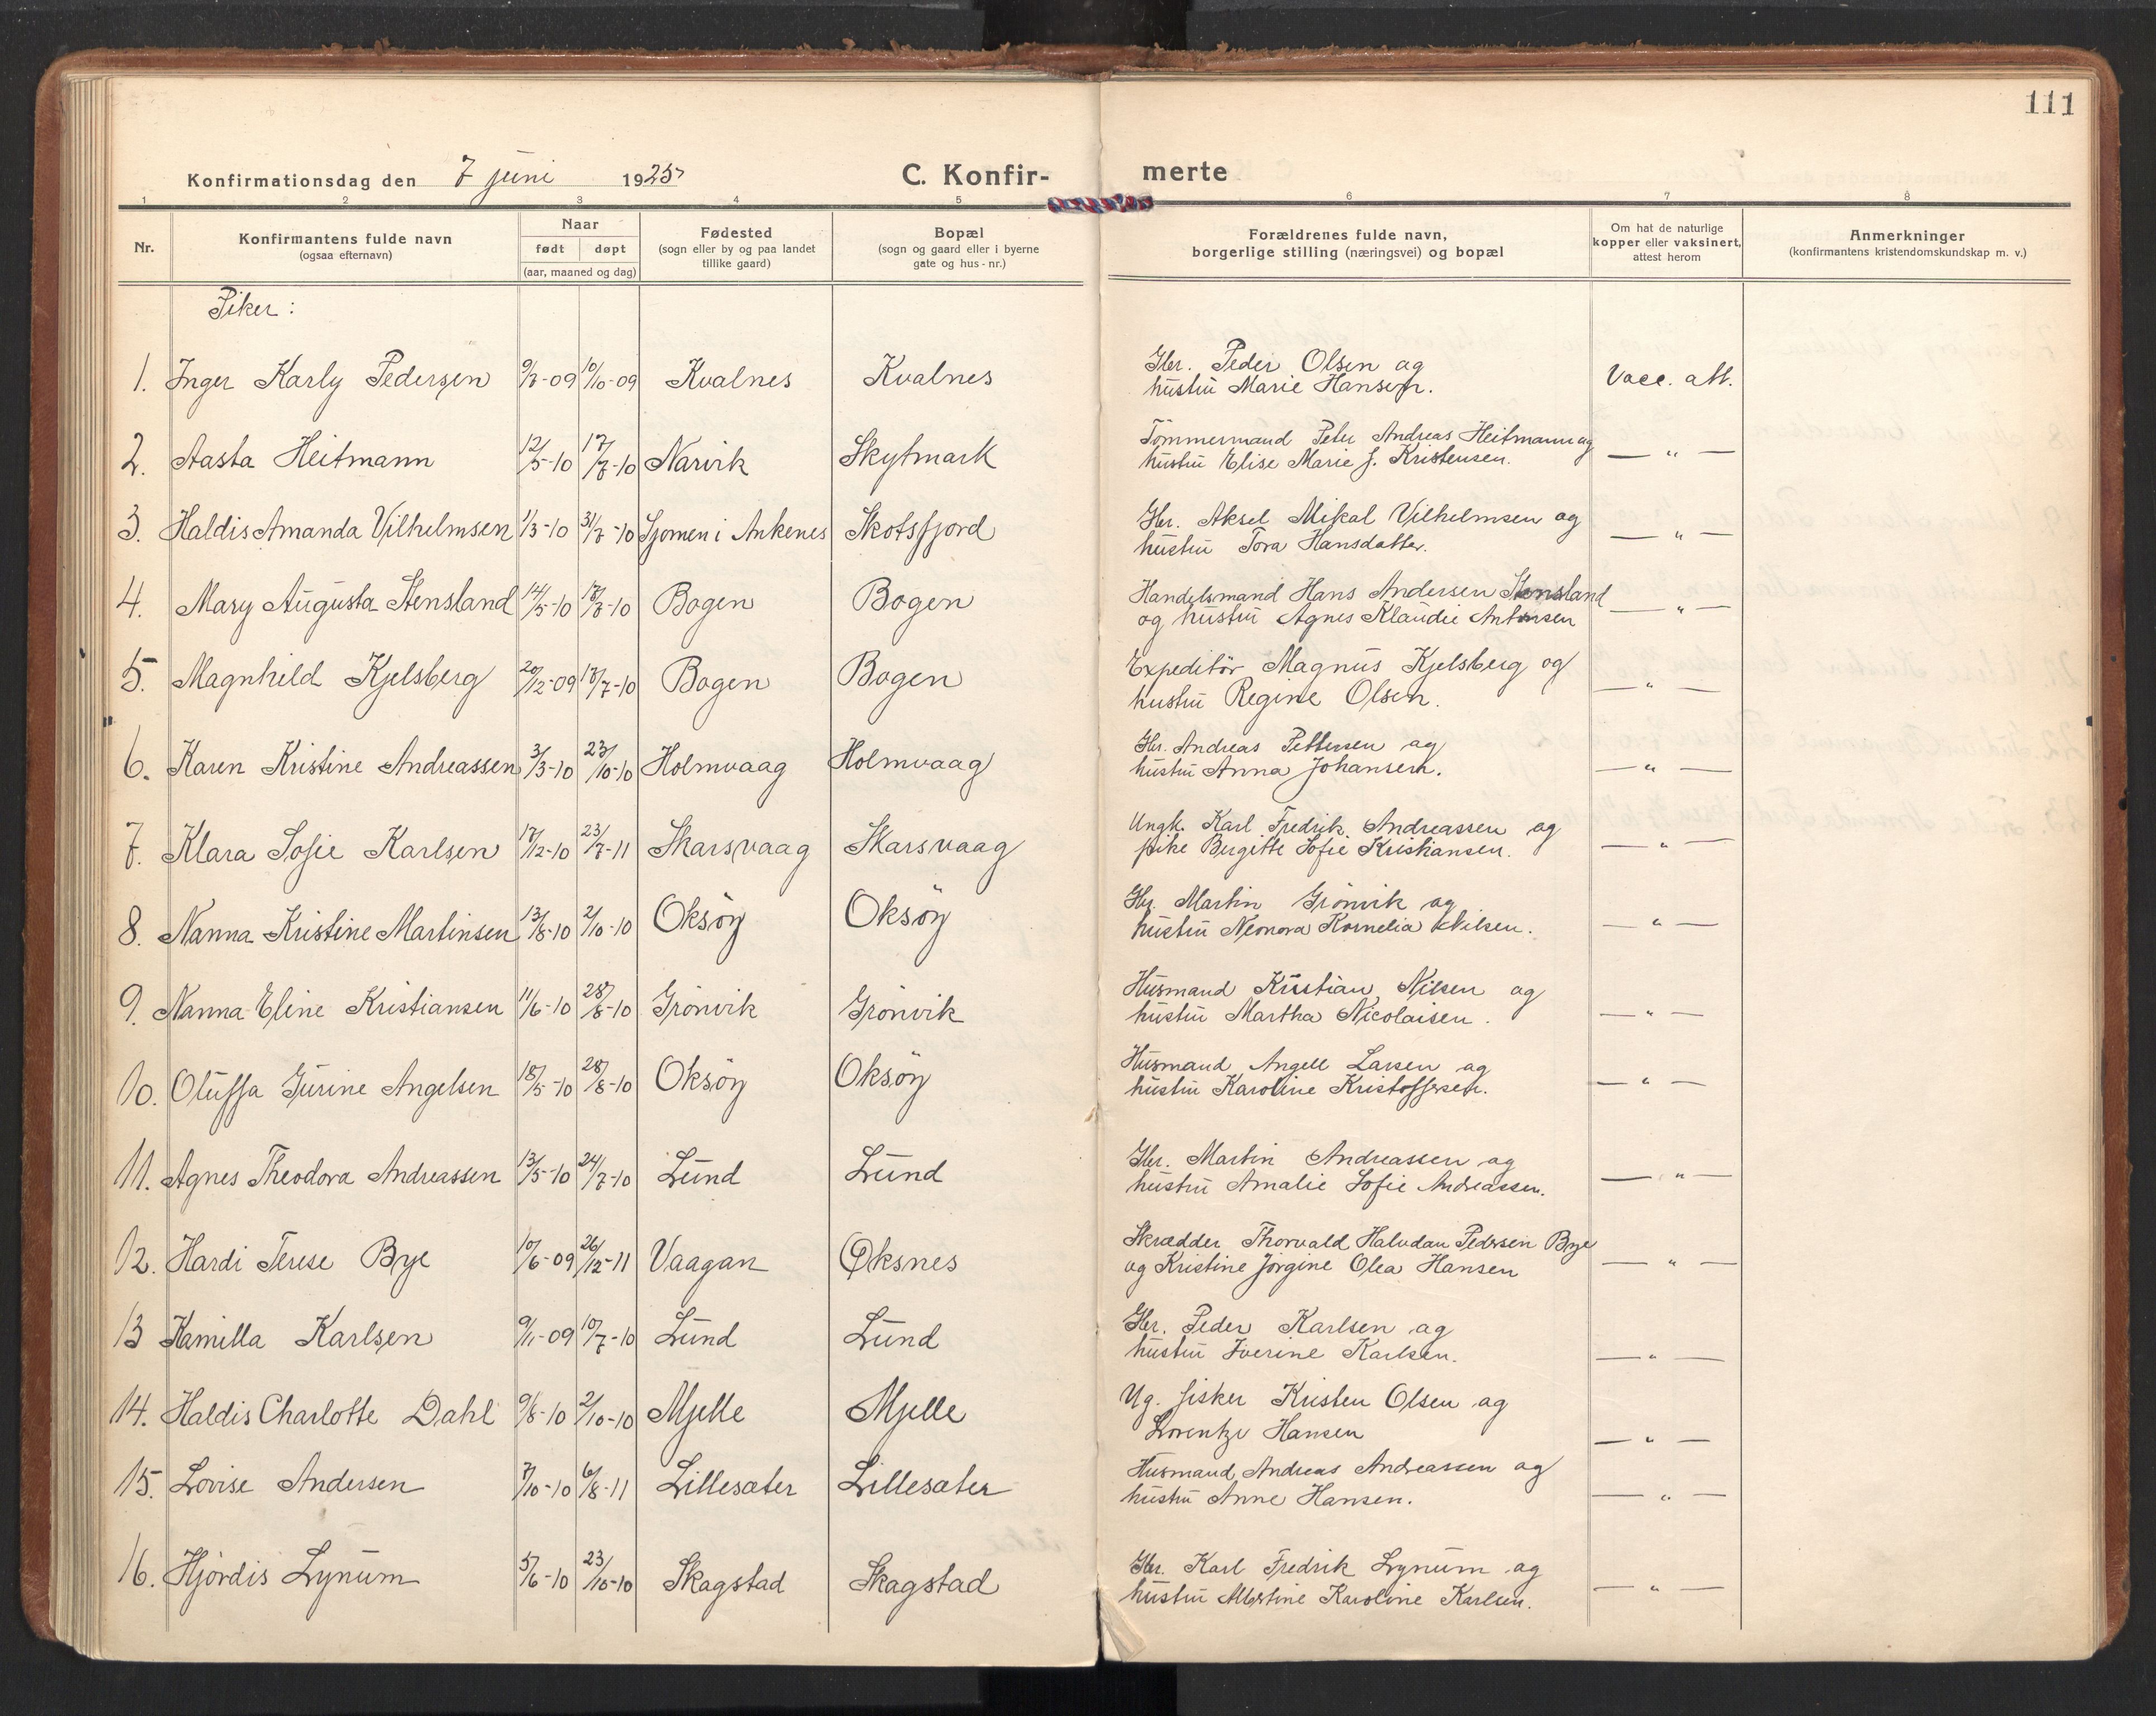 111
Konfirmationsdag den 7 juni 1925 C. Konfir- merte
1 2 3 4 5 6 7 8
Nr. Konfirmantens fulde navn (ogsaa efternavn) Naar født døpt (aar, maaned og dag) Fødested (sogn eller by og paa landet tillike gaard) Bopæl (sogn og gaard eller i byerne gate og hus-nr.) Forældrenes fulde navn, borgerlige stilling (næringsvei) og bopæl Om hat de naturlige kopper eller vaksinert, attest herom Anmerkninger (konfirmantens kristendomskundskap m. v.)
Piker:
1. Inger Karly Pedersen 9/7-09 10/10-09 Kvalnes Kvalnes Gbr. Peder Olsen og hustru Marie Hansen. Vacc. att.
2. Aasta Heitmann 12/5-10 17/7-10 Narvik Skytmark Tömmermand Peter Andreas Heitmann og hustru Elise Marie J. Kristensen. — " —
3. Haldis Amanda Vilhelmsen 1/3-10 31/7-10 Sjomen i Ankenes Skotsfjord Gbr. Aksel Mikal Vilhelmsen og hustru Tora Hansdatter. — " —
4. Mary Augusta Stensland 14/5-10 17/7-10 Bogen Bogen Handelsmand Hans Andersen Stensland og hustru Agnes Klaudie Antonsen — " —
5. Magnhild Kjelsberg 20/12-09 17/7-10 Bogen Bogen Expeditör Magnus Kjelsberg og hustru Regine Olsen. — " —
6. Karen Kristine Andreassen 3/3-10 23/10-10 Holmvaag Holmvaag Gbr. Andreas Pettersen og hustru Anna Johansen. — " —
7. Klara Sofie Karlsen 17/12-10 23/7-11 Skarsvaag Skarsvaag Ungk. Karl Fredrik Andreassen og pike Bergitte Sofie Kristiansen. — " —
8. Nanna Kristine Martinsen 13/8-10 2/10-10 Oksöy Oksöy Gbr. Martin Grönvik og hustru Neonora Kornelia Nilsen. — " —
9. Nanna Eline Kristiansen 11/6-10 28/8-10 Grönvik Grönvik Husmand Kristian Nilsen og hustru Martha Nicolaisen. — " —
10. Oluffa Jurine Angelsen 18/5-10 28/8-10 Oksöy Oksöy Husmand Angell Larsen og hustru Karoline Kristoffersen. — " —
11. Agnes Theodora Andreassen 13/5-10 24/7-10 Lund Lund Gbr. Martin Andreassen og hustru Amalie Sofie Andreassen. — " —
12. Hardi Terese Bye 10/6-09 26/12-11 Vaagan Øksnes Skrædder Thorvald Halvdan Pedersen Bye og Kristine Jörgine Olea Hansen — " —
13 Kamilla Karlsen 9/11-09 10/7-10 Lund Lund Gbr. Peder Karlsen og hustru Iverine Karlsen. — " —
14. Haldis Charlotte Dahl 9/8-10 2/10-10 Mjelle Mjelle Ug. fisker Kristen Olsen og Lorentze Hansen — " —
15. Lovise Andersen 7/10-10 6/8-11 Lillesæter Lillesæter Husmand Andreas Andreassen og hustru Anne Hansen. — " —
16. Hjördis Lynum 5/6-10 23/10-10 Skagstad Skagstad Gbr. Karl Fredrik Lynum og hustru Albertine Karoline Karlsen. — " —